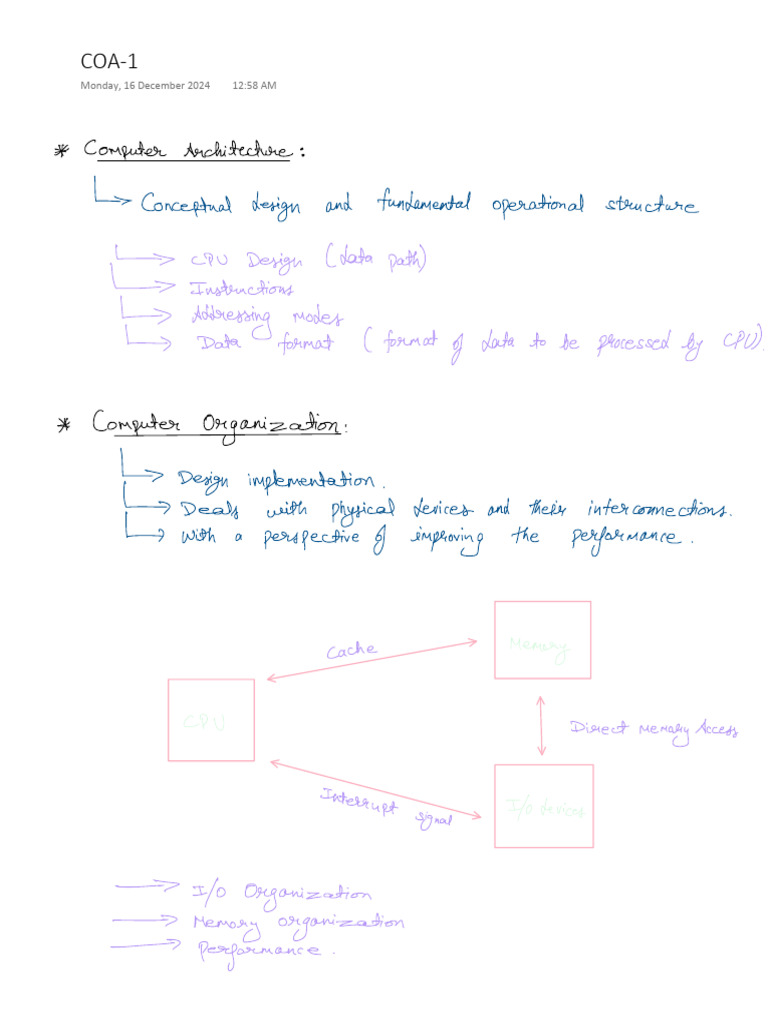 COA-1
Monday, 16 December 2024 12:58 AM
* Computer Architecture :
Conceptual design and fundamental operational structure
CPU Design (data path)
Instructions
Addressing modes
Data format ( format of data to be processed by CPU).
* Computer Organization :
Design implementation.
Deals with physical devices and their interconnections.
With a perspective of improving the performance.
Cache
Memory
CPU
Direct Memory Access
Interrupt signal
I/O devices
I/O Organization
Memory organization
Performance.